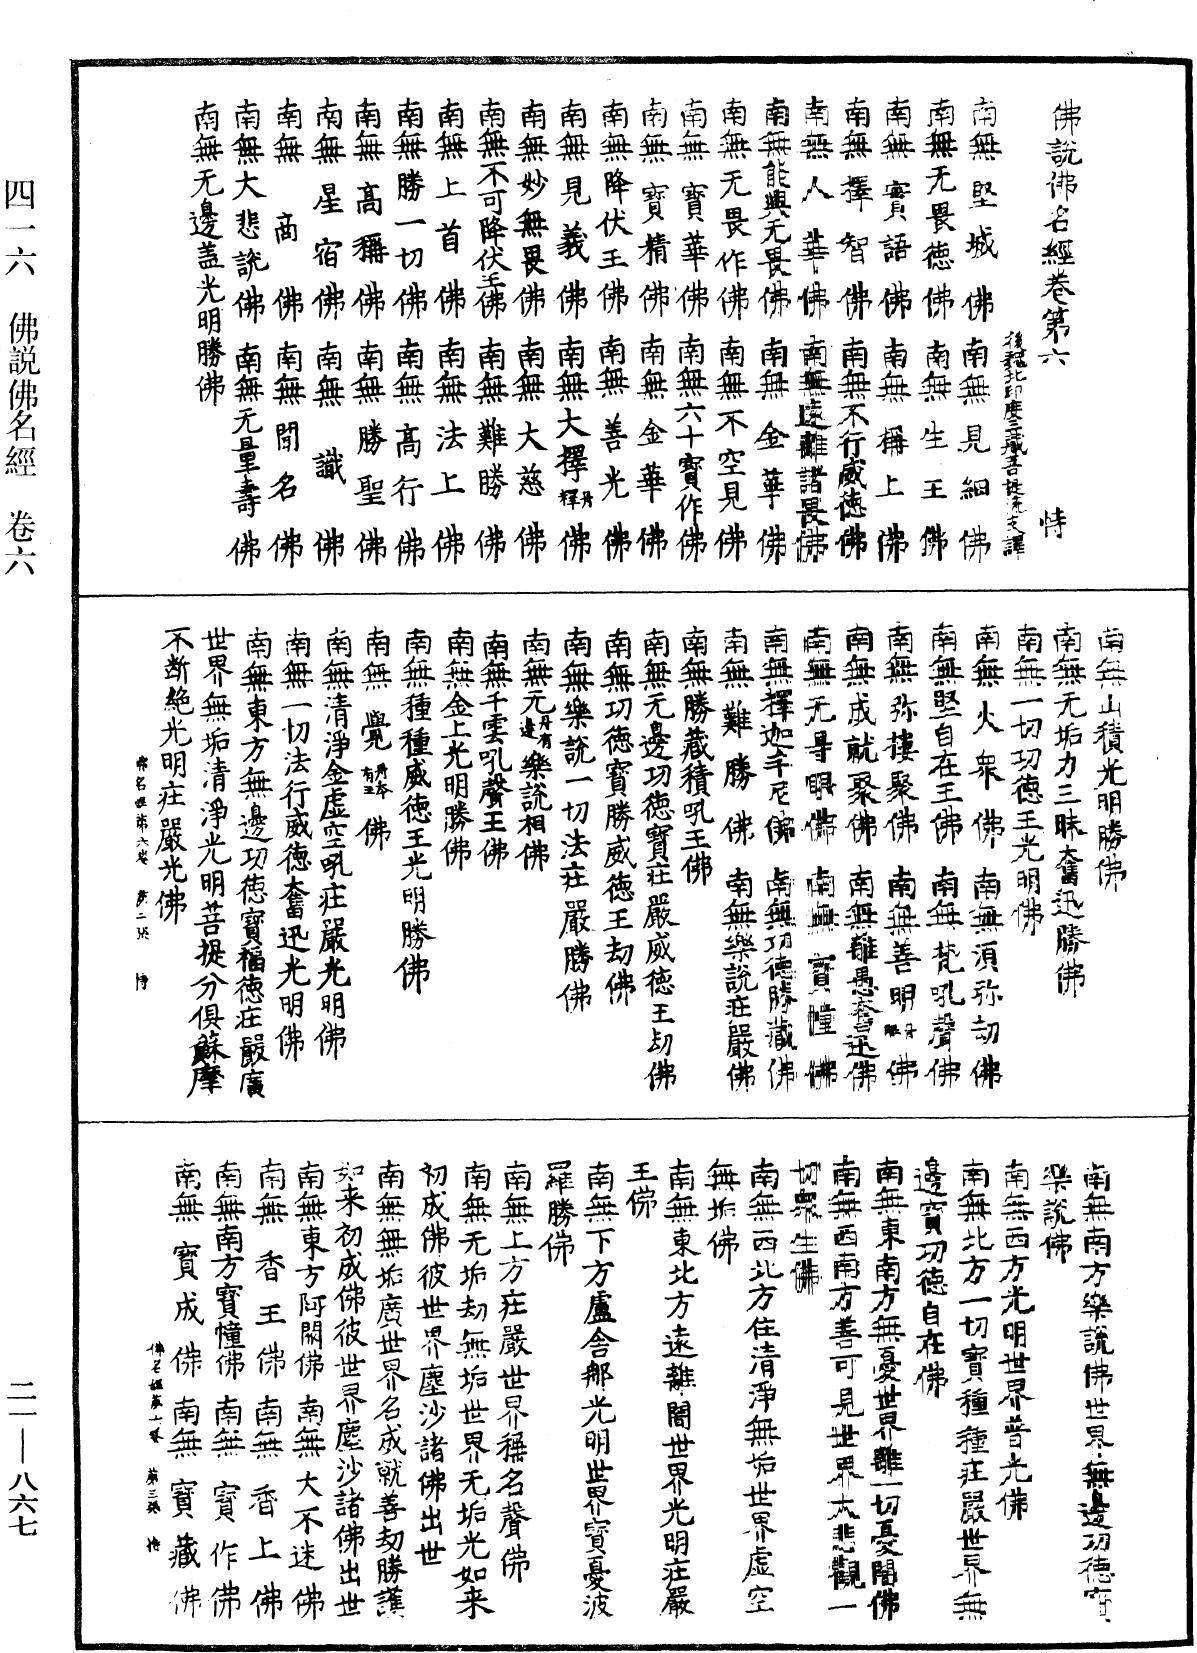 佛說佛名經卷第六　恃
後魏北印度三藏菩提流支譯
南無堅城佛　南無見細佛
南無无畏德佛　南無生王佛
南無實語佛　南無稱上佛
南無擇智佛　南無不行威德佛
南無人華佛　南無遠離諸畏佛
南無能與无畏佛　南無金華佛
南無无畏作佛　南無不空見佛
南無寶華佛　南無六十寶作佛
南無寶精佛　南無金華佛
南無降伏王佛　南無善光佛
南無見義佛　南無大擇丹釋佛
南無妙無畏佛　南無大慈佛
南無不可降伏王佛　南無難勝佛
南無上首佛　南無法上佛
南無勝一切佛　南無高行佛
南無高稱佛　南無勝聖佛
南無星宿佛　南無識佛
南無商佛　南無聞名佛
南無大悲說佛　南無无量壽佛
南無无邊盖光明勝佛
南無山積光明勝佛
南無无垢力三昧奮迅勝佛
南無一切功德王光明佛
南無火衆佛　南無須弥劫佛
南無堅自在王佛　南無梵吼聲佛
南無弥樓聚佛　南無善明丹眼佛
南無成就聚佛　南無離愚奮迅佛
南無无㝵眼佛　南無寶幢佛
南無釋迦牟尼佛　南無功德勝藏佛
南無難勝佛　南無樂說莊嚴佛
南無勝藏積吼王佛
南無无邊功德寶莊嚴威德王劫佛
南無功德寶勝威德王劫佛
南無樂說一切法莊嚴勝佛
南無无丹有邊樂說相佛
南無千雲吼聲王佛
南無金上光明勝佛
南無種種威德王光明勝佛
南無覺丹本有王佛
南無清淨金虛空吼莊嚴光明佛
南無一切法行威德奮迅光明佛
南無東方無邊功德寶福德莊嚴廣
世界無垢清淨光明菩提分俱蘇摩
不斷絕光明莊嚴光佛
佛名經第六卷　第二張　恃
南無南方樂說佛世界無邊功德寶
樂說佛
南無西方光明世界普光佛
南無北方一切寶種種莊嚴世界無
邊寶功德自在佛
南無東南方無憂世界離一切憂闇佛
南無西南方善可見世界大悲觀一
切衆生佛
南無西北方住清淨無垢世界虛空
無垢佛
南無東北方遠離闇世界光明莊嚴
王佛
南無下方盧舍那光明世界寶憂波
羅勝佛
南無上方莊嚴世界稱名聲佛
南無无垢劫無垢世界无垢光如来
初成佛彼世界塵沙諸佛出世
南無無垢廣世界名成就善劫勝護
如来初成佛彼世界塵沙諸佛出世
南無東方阿閦佛　南無大不迷佛
南無香王佛　南無香上佛
南無南方寶幢佛　南無寶作佛
南無寶成佛　南無寶藏佛
佛名經第六卷　第三張　恃
四一六　佛說佛名經　卷六
二一—八六七